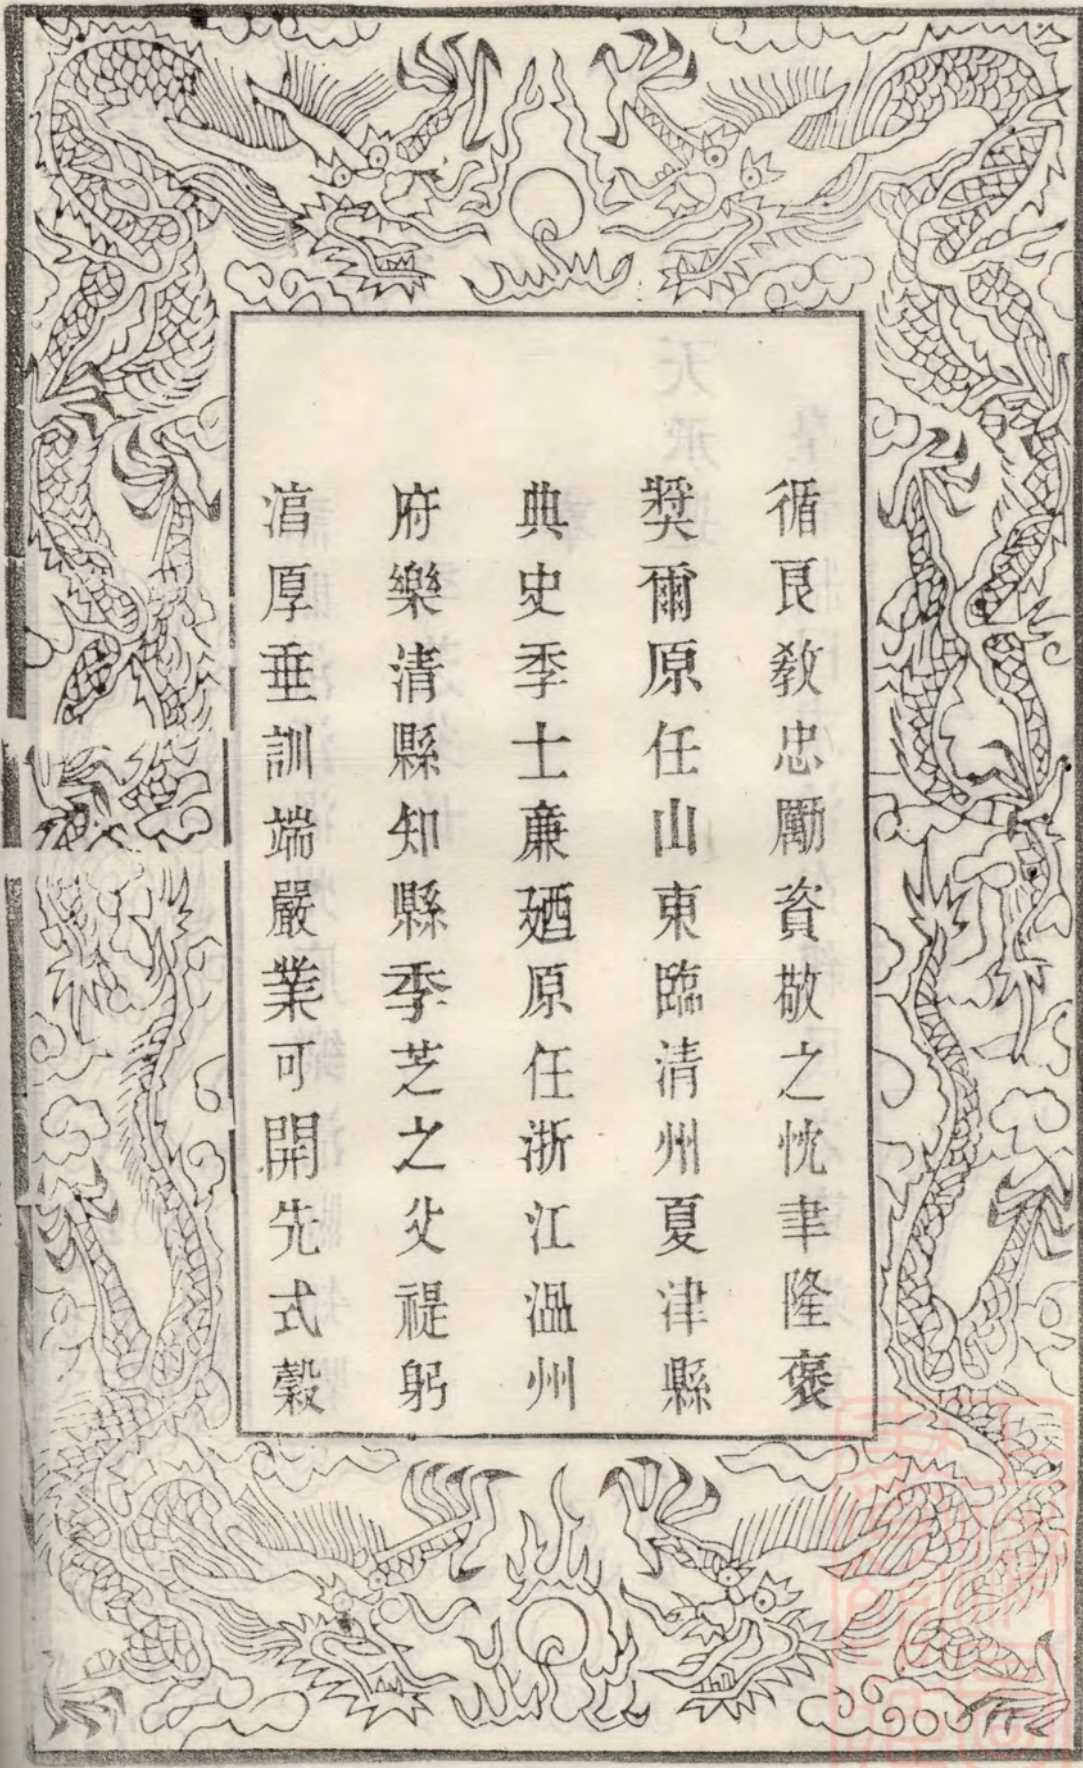 循良敎忠勵資敬之忱聿隆褒
獎爾原任山東臨清州夏津縣
典史季士亷廼原任浙江溫州
府樂清縣知縣季芝之父禔躬
湻厚垂訓端嚴業可開先式穀